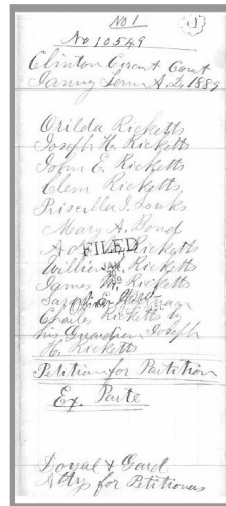 No 1
No 10549
Clinton Circuit Court
January Term A.D. 1889
Orilda Ricketts
Joseph H. Ricketts
John E. Ricketts
Clem Ricketts,
Priscilla J. Louks
Mary A. Bond
Ricketts
FILED
JAN
William Ricketts
James Ricketts
Charles Ricketts by
his Guardian Joseph
H. Ricketts
Petition for Partition
Ex. Parte
Doyal & Gard
Attys for Petitioners